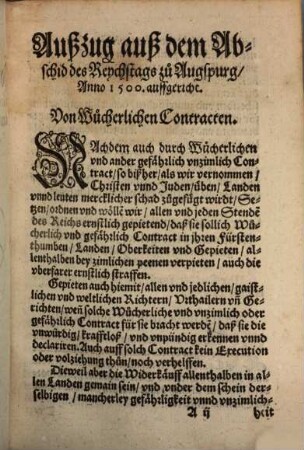 Außzug auß dem Ab-
schid des Reychstags zů Augspurg/
Anno 1500. auffgericht.
Von Wücherlichen Contracten.
NAchdem auch durch Wücherlichen
vnd ander gefåhrlich vnzimlich Con-
tract/ so biß her/ als wir vernommen/
Christen vnnd Juden/ üben/ Landen
vnnd leuten mercklicher schad zůgefügt wirdt/ Se-
tzen/ ordnen vnd wöllē wir/ allen vnd jeden Stendē
des Reichs ernstlich gepietend/ daß sie sollich Wů-
cherlich vnd gefåhrlich Contract in jhren Fürsten-
thumben/ Landen/ Oberkeiten vnd Gepieten/ al-
lenthalben bey zimlichen peenen verpieten/ auch die
vberfarer ernstlich straffen.
Gepieten auch hiemit/ allen vnd jedlichen/ gaist-
lichen vnd weltlichen Richtern/ Vrthailern vñ Ge-
richten/ weñ solche Wücherliche vnd vnzimlich oder
gefåhrlich Contract für sie bracht werdē/ daß sie die
vnwürdig/ krafftloß/ vnd vnpündig erkennen vnnd
declariren. Auch auff solch Contract kein Execution
oder volziehung thůn/ noch verhelffen.
Dieweil aber die Widerkåuff allenthalben in al-
len Landen gemain sein/ vnd/ vnder dem schein der-
selbigen/ mancherley gefåhrligkeit vnnd vnzimlich-
A ij heit